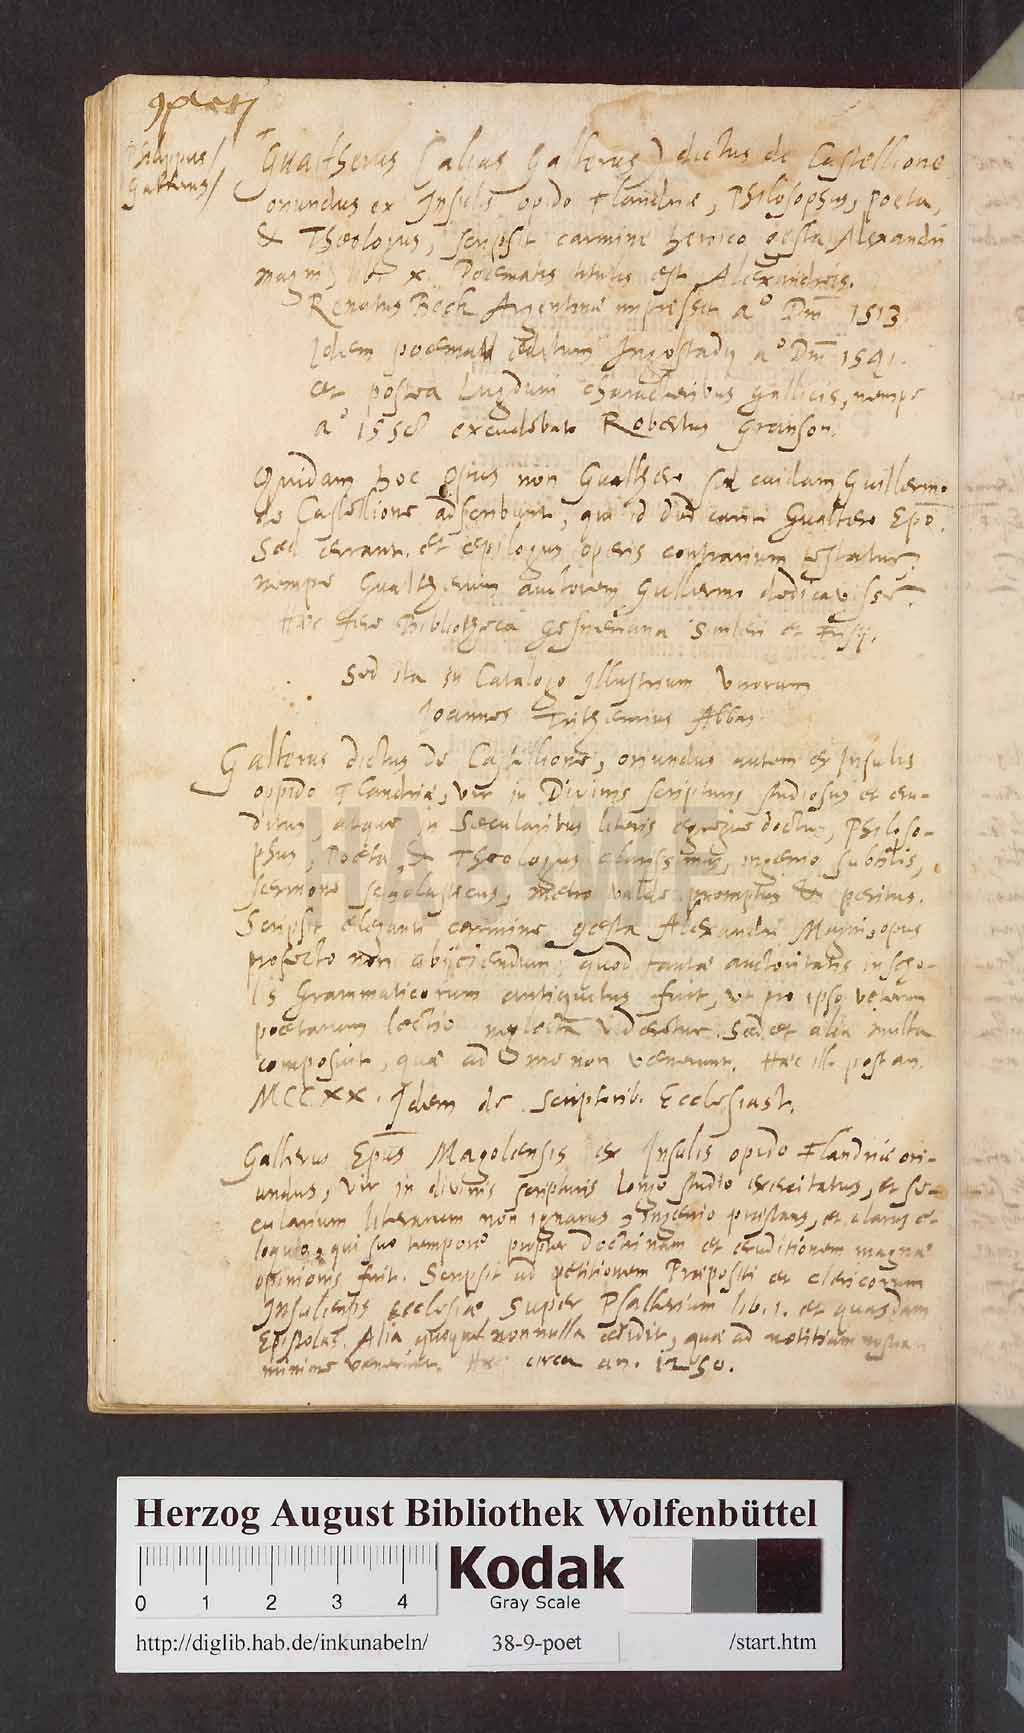 Philippus
Galterus
Gualtherus (alias Galterus) dictus de Castellione
oriundus ex Insulis opido Flandriæ, Philosophus, poeta,
& Theologus, scripsit carmine heroico gesta Alexandri
magni, x. Poematis titulus est Alexandreis.
Renatus Beck Argentinæ impressit a° Dni 1513
Idem poema editum Ingolstadij a° Dni 1541.
et postea Lugduni characteribus gallicis, nempe
a° 1558 excudebat Robertus Granion.
Quidam hoc opus non Gualthero sed cuidam Guillermo
de Castellione adscribunt, qui id dedicarit Gualtero Epō.
Sed errant. et epilogus operis contrarium testatur,
nempe Gualtherum auctorem Gullermo dedicavisse.
Hæc fere Bibliotheca Gesneriana Simleri et Frisij.
Sed ita in Catalogo illustrium virorum
Joannes Trithemius Abbas
Galterus dictus de Castellione, oriundus autem ex Insulis
oppido Flandriæ, vir in Divinis scripturis studiosus et eru-
ditus, atque in Sæcularibus literis egregie doctus, Philoso-
phus, Poeta, & Theologus clarissimus, ingenio subtilis,
sermone scholasticus, metro valde promptus & peritus.
Scripsit eleganti carmine gesta Alexandri Magni, opus
profecto non abijciendum, quod tantæ auctoritatis in scho-
lis Grammaticorum antiquitus fuit, ut pro ipso veterum
poetarum lectio neglecta videretur. Sed et alia multa
composuit, quæ ad me non venerunt. Hæc ille post an.
MCCXX. Idem de Scriptorib. Ecclesiast.
Galterus Epūs Magolensis ex Insulis opido Flandriæ ori-
undus, vir in divinis scripturis longo studio exercitatus, et se-
cularium literarum non ignarus, ingenio præstans, et clarus e-
loquio, qui suo tempore propter doctrinam et eruditionem magnæ
opinionis fuit. Scripsit ad petitionem Præpositi et clericorum
Insulensis ecclesiæ Super Psalterium lib. 1. et quasdam
Epistolas. Alia quoque nonnulla edidit, quæ ad notitiam nostram
minime venerunt. Hæc circa an. 1250.
HAB WF
Herzog August Bibliothek Wolfenbüttel
0 1 2 3 4
Kodak
Gray Scale
http://diglib.hab.de/inkunabeln/ 38-9-poet /start.htm